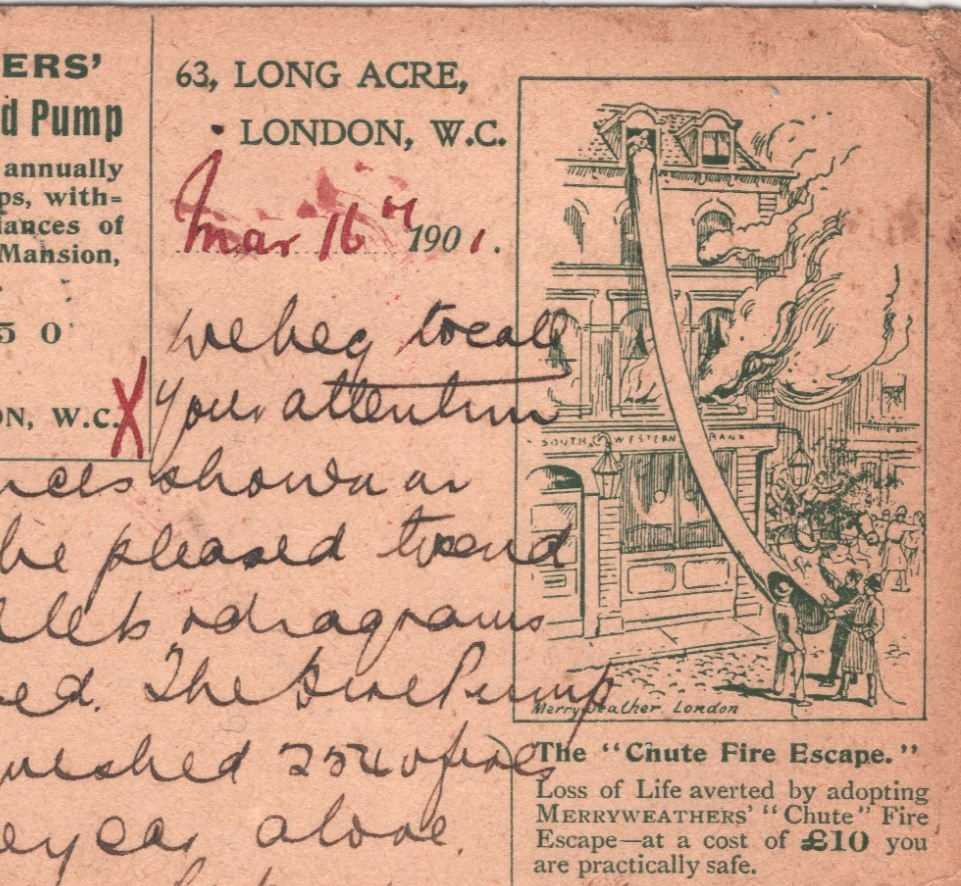 ERS'
d Pump
annually
ps, with=
iances of
Mansion,
5 0
ON, W.C.
63, LONG ACRE,
LONDON, W.C.
Mar 16th 1901.
We beg to call
your attention
nces shown on
be pleased to send
lets & diagrams
ed. The Fire Pump
uished 254 of fires
e year alone.
SOUTH WESTERN BANK
Merryweather. London
The "Chute Fire Escape."
Loss of Life averted by adopting
MERRYWEATHERS' "Chute" Fire
Escape—at a cost of £10 you
are practically safe.